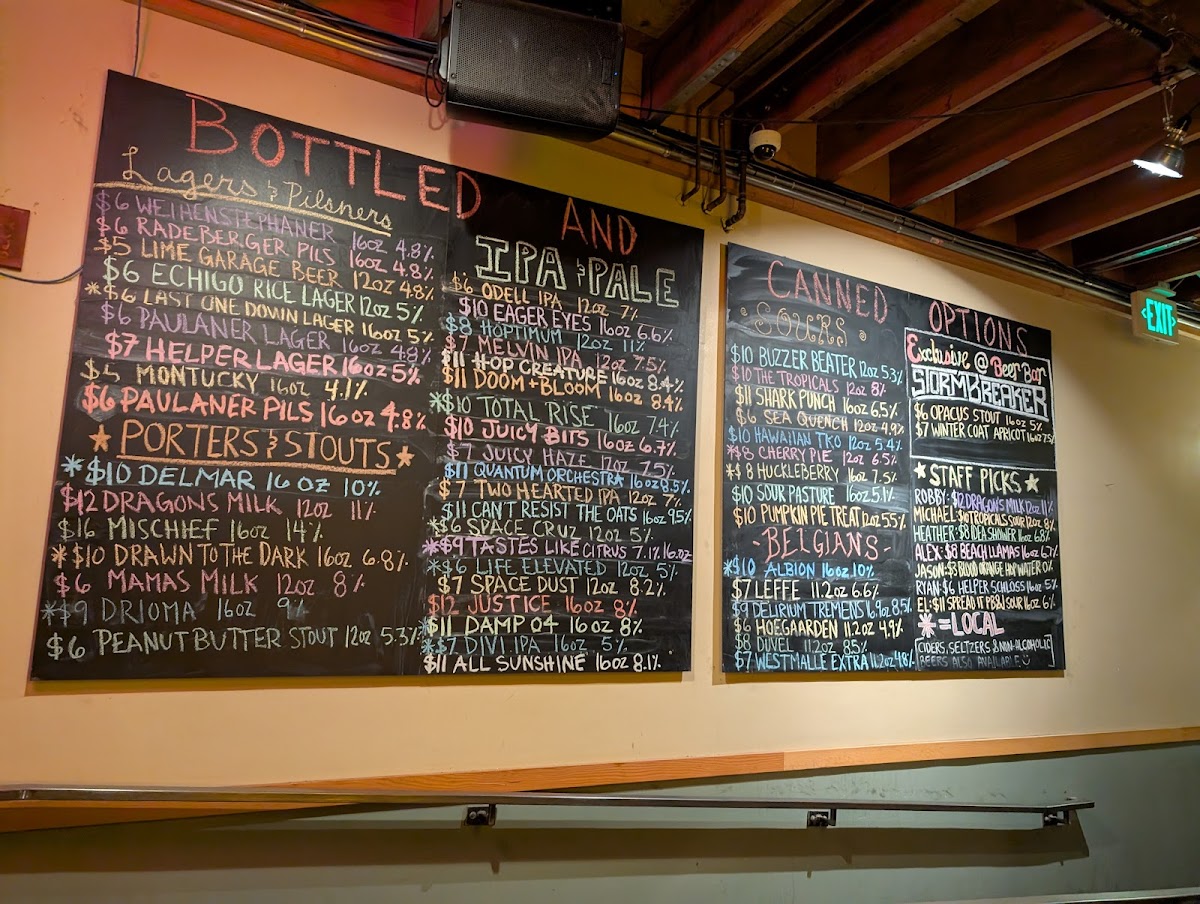 BOTTLED AND
Lagers & Pilsners
$6 WEIHENSTEPHANER
$6 RADEBERGER PILS 16oz 4.8%
$5 LIME GARAGE BEER 12oz 4.8%
$6 ECHIGO RICE LAGER 12oz 5%
*$6 LAST ONE DOWN LAGER 16oz 5%
$6 PAULANER LAGER 16oz 4.8%
$7 HELPER LAGER 16oz 5%
$5 MONTUCKY 16oz 4.1%
$6 PAULANER PILS 16oz 4.8%
★PORTERS & STOUTS★
*$10 DELMAR 16OZ 10%
$12 DRAGONS MILK 12oz 11%
$16 MISCHIEF 16oz 14%
*$10 DRAWN TO THE DARK 16oz 6.8%
$6 MAMAS MILK 12oz 8%
*$9 DRIOMA 16oz 9%
$6 PEANUT BUTTER STOUT 12oz 5.3%
IPA & PALE
$6 ODELL IPA 12oz 7%
$10 EAGER EYES 16oz 6.6%
$8 HOPTIMUM 12oz 11%
$7 MELVIN IPA 12oz 7.5%
$11 HOP CREATURE 16oz 8.4%
$11 DOOM + BLOOM 16oz 8.4%
*$10 TOTAL RISE 16oz 7.4%
$10 JUICY BITS 16oz 6.7%
$7 JUICY HAZE 12oz 7.5%
$11 QUANTUM ORCHESTRA 16oz 8.5%
$7 TWO HEARTED IPA 12oz 7%
$11 CAN'T RESIST THE OATS 16oz 9.5%
*$6 SPACE CRUZ 12oz 5%
*$9 TASTES LIKE CITRUS 7.1% 16.oz
*$6 LIFE ELEVATED 12oz 5%
$7 SPACE DUST 12oz 8.2%
$12 JUSTICE 16oz 8%
*$11 DAMP 04 16oz 8%
*$7 DIVI IPA 16oz 5%
$11 ALL SUNSHINE 16oz 8.1%
CANNED OPTIONS
SOURS
$10 BUZZER BEATER 12oz 5.3%
$10 THE TROPICALS 12oz 8%
$11 SHARK PUNCH 16oz 6.5%
$6 SEA QUENCH 12oz 4.9%
$10 HAWAIIAN TKO 12oz 5.4%
*$8 CHERRY PIE 12oz 6.5%
*$8 HUCKLEBERRY 16oz 7.5%
$10 SOUR PASTURE 16oz 5.1%
$10 PUMPKIN PIE TREAT 12oz 5.5%
-BELGIANS-
*$10 ALBION 16oz 10%
$7 LEFFE 11.2oz 6.6%
$9 DELIRIUM TREMENS 16.9oz 8.5%
$6 HOEGAARDEN 11.2oz 4.9%
$8 DUVEL 11.2oz 8.5%
$7 WESTMALLE EXTRA 11.2oz 4.8%
Exclusive @ Beer Bar
STORMBREAKER
$6 OPACUS STOUT 16oz 5%
$7 WINTER COAT APRICOT 16oz 7.5%
★STAFF PICKS★
ROBBY: $12 DRAGONS MILK 12oz 11%
MICHAEL: $10 TROPICALS SOUR 12oz 8%
HEATHER: $8 IDEA SHOWER 16oz 6.8%
ALEX: $8 BEACH LLAMAS 16oz 6.7%
JASON: $3 BLOOD ORANGE HOP WATER 0%
RYAN: $6 HELPER SCHLOSS 16oz 5%
EL: $11 SPREAD IT PB&J SOUR 16oz 6%
*=LOCAL
CIDERS, SELTZERS & NON-ALCOHOLIC
BEERS ALSO AVAILABLE
EXIT